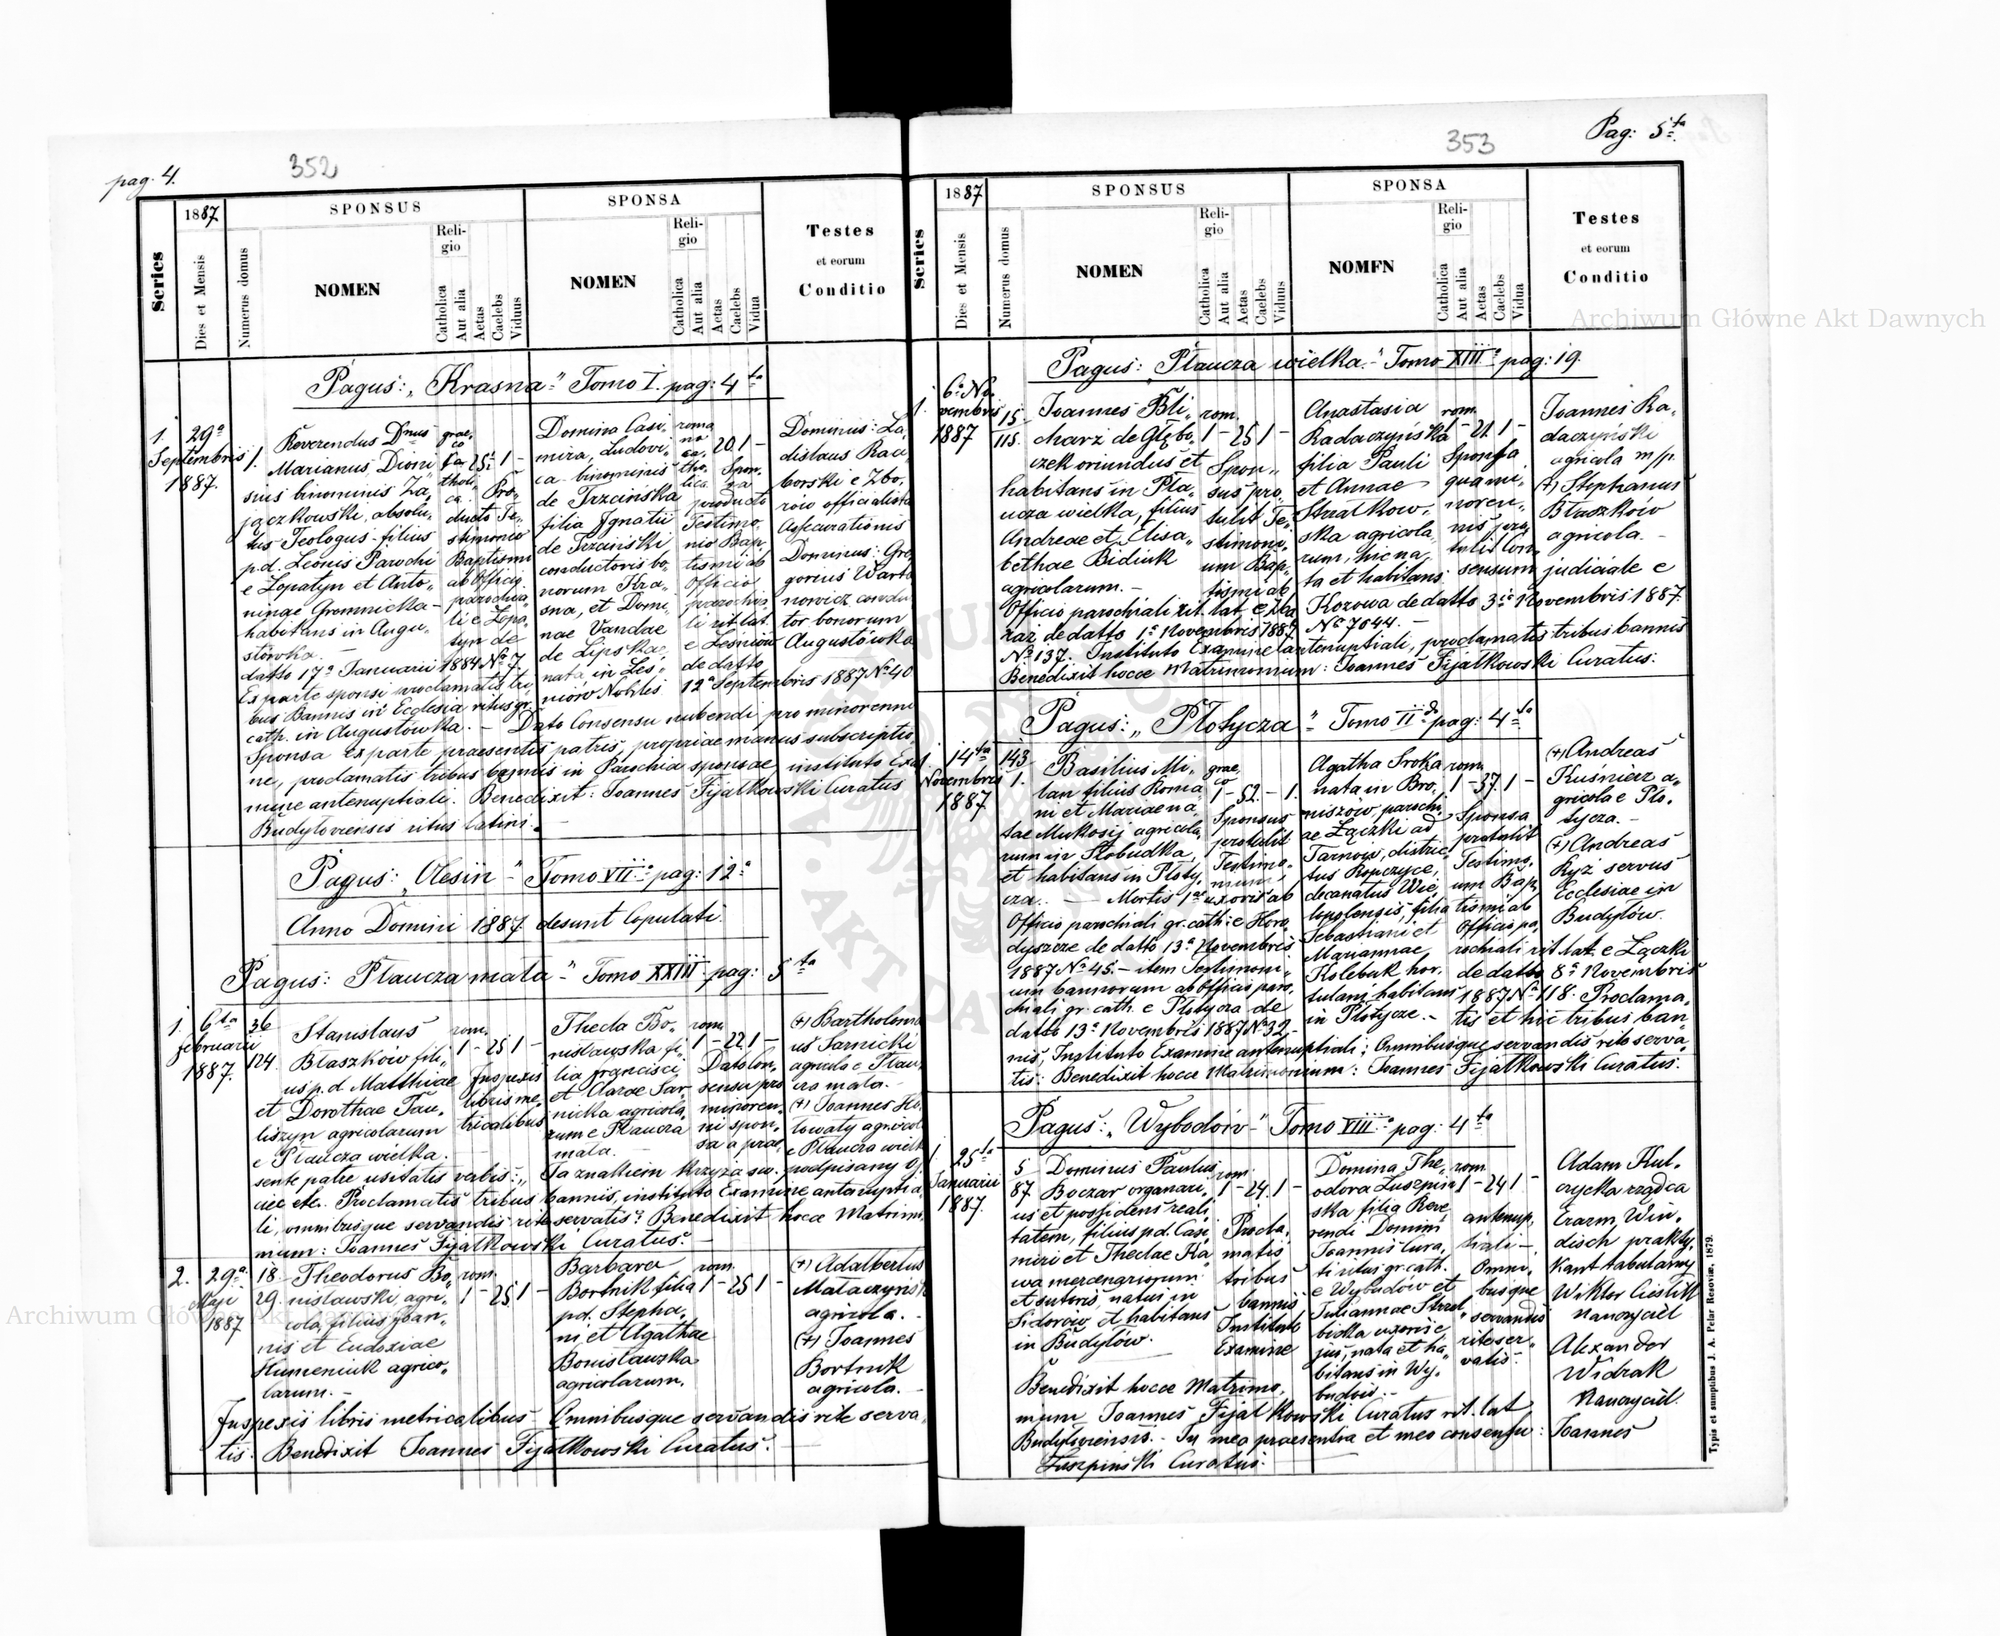 pag. 4.
352
Series
1887
Dies et Mensis
Numerus domus
SPONSUS
NOMEN
Reli-
gio
Catholica
Aut alia
Aetas
Caelebs
Viduus
SPONSA
NOMEN
Reli-
gio
Catholica
Aut alia
Aetas
Caelebs
Vidua
Testes
et eorum
Conditio
Pagus: „Krasna" Tomo I. pag: 4ta
1.
29a
Septembris
1887.
1.
Reverendus Dnus
Marianus, Dioni
sius binominis Za,
jączkowski, absolu,
tus Teologus - filius
p.d. Leonis Parochi
e Lopatyn et Anto,
ninae Gromnicka -
habitans in Augu,
stówka. -
grae,
co
ca
tholi,
ca.
25 1 -
Pro,
ducto Te,
stimonio
Baptismi
ab Officio
parochia,
li e Lopa,
tyn de
datto 17a Januarii 1884 No 7.
Ex parte sponsi proclamatis tri,
bus Bannis in Ecclesia ritus gr.
cath. in Augustówka. -
Domina Casi,
mira, Ludovi,
ca binominis
de Trzcińska
filia Ignatii
de Trzciński
conductoris bo,
norum Kra,
sna, et Domi,
nae Vandae
de Lipska,
nata in Leś,
niów Nobiles
roma
na
ca,
tho,
lica.
20. 1 -
Spon,
sa
producto
Testimo,
nio Bap,
tismi ab
Officio
parochia,
li rit. lat.
e Leśniów
de datto
12a Septembris 1887 No 40.
Dominus: La,
dislaus Rac,
borski e Zbo,
rów officialista
Assecurationis
Dominus: Gre
gorius Warta
nowicz condu
ctor bonorum
Augustówka
Dato Consensu nubendi pro minorenni
Sponsa ex parte praesentis patris, propriae manus subscriptio,
ne, proclamatis tribus bannis in Parochia sponsae, instituto Exa
mine antenuptiali. Benedixit: Joannes Fijałkowski Curatus
Budyłoviensis ritus latini.
Pagus: „Olesin" Tomo VIIo pag: 12a
Anno Domini 1887. desunt Copulati.
Pagus: Płaucza mała" Tomo XXIII. pag: 5ta
1.
6ta
Februarii
1887.
36
124.
Stanislaus
Błaszków fili,
us p.d. Matthiae
et Dorothae Tau,
liszyn agricolarum
e Płaucza wielka.
rom.
1 - 25 1 -
Inspexis
libris me,
tricalibus
Thecla Bo,
nislawska fi,
lia Francisci,
et Clarae Jar,
nicka agricola,
rum e Płaucza
mała. -
rom.
1 - 22. 1 -
Dato Con,
sensu pro
minoren,
ni spon,
sa a prae,
(+) Bartholome
us Jarnicki
agricola e Płau,
cza mała. -
(+) Joannes Ho,
łowaty agricola
e Płaucza wielk
sente patre usitatis verbis: „Ja znakiem krzyża sw. podpisany oj,
ciec etc. Proclamatis tribus bannis, instituto Examine antenuptia,
li, omnibusque servandis rite servatis: Benedixit hocce Matrimo,
nium: Joannes Fijałkowski Curatus. -
2.
29a
Maji
1887
18.
29.
Theodorus Bo,
nislawski, agri,
cola, filius Joan,
nis et Eudoxiae
Humeniuk agrico,
larum. -
rom.
1 - 25 1 -
Barbara
Bortnik filia
p.d. Stepha,
ni et Agathae
Bonislawska
agricolarum.
rom.
1 - 25 1 -
(+) Adalbertus
Mataczyńsk
agricola. -
(+) Joannes
Bortnik
agricola. -
Inspexis libris metricalibus Omnibusque servandis rite serva,
tis: Benedixit Joannes Fijałkowski Curatus. -
Pag: 5ta
353
Series
1887
Dies et Mensis
Numerus domus
SPONSUS
NOMEN
Reli-
gio
Catholica
Aut alia
Aetas
Caelebs
Viduus
SPONSA
NOMFN
Reli-
gio
Catholica
Aut alia
Aetas
Caelebs
Vidua
Testes
et eorum
Conditio
Pagus: „Płaucza wielka" Tomo XIIIo pag: 19.
1.
6a No,
vembris
1887
15.
115.
Joannes Bli,
charz de Głębo,
czek oriundus et
habitans in Pła,
ucza wielka, filius
Andreae et Elisa,
bethae Bidiuk
agricolarum. -
rom.
1 - 25 1 -
Spon,
sus pro,
tulit Te,
stimoni,
um Bap,
tismi ab
Officio parochiali rit. lat. e Zba
raz de datto 1a Novembris 1887
No 137.
Anastasia
Radaczyńska
filia Pauli
et Annae
Strzałkow,
ska agricola,
rum, hic na,
ta et habitans
rom.
1 - 21. 1 -
Sponsa
qua mi,
noren,
nis pro,
tulit Con,
sensum judiciale e
Kozowa de datto 3tia Novembris 1887.
No 7644. -
Joannes Ra,
daczyński
agricola m/p.
(+) Stephanus
Błaszków
agricola. -
Instituto Examine antenuptiali, proclamatis tribus bannis
Benedixit hocce Matrimonium: Joannes Fijałkowski Curatus.
Pagus: „Płotycza" Tomo IIdo pag: 4ta
1.
14ta
Novembris
1887
143
1.
Basilius Mi,
lan filius Roma,
ni et Mariae na,
tae Mukosij agricola,
rum in Słobudka,
et habitans in Płoty,
cza. -
grae,
co
1 - 52. - 1.
Sponsus
protulit
Testimo,
nium
Mortis 1ae uxoris ab
Officio parochiali gr. cath: e Horo,
dyszcze de datto 13a Novembris
1887 No 45. - item Testimoni,
um bannorum ab Officio paro,
chiali gr. cath. e Płotycza de
datto 13a Novembris 1887 No 32.-
Agatha Sroka
nata in Bro,
niszów, parochi,
ae Łączki ad
Tarnów, distric,
tus Ropczyce,
decanatus Wie,
lopolensis, filia
Sebastiani et
Mariannae
Kolebuk hor,
tulani, habitans
in Płotycze. -
rom.
1 - 37. 1 -
Sponsa
protulit
Testimo,
um Bap,
tismi ab
Officio pa,
rochiali rit. lat. e Łączki
de datto 8a Novembris
1887 No 118. Proclama,
tis et hic tribus ban,
(+) Andreas
Kuśnierz a,
gricola e Pło,
tycza. -
(+) Andreas
Ryż servus
Ecclesiae in
Budyłów.
nis, Instituto Examine antenuptiali; Omnibusque servandis rite serva,
tis: Benedixit hocce Matrimonium: Joannes Fijałkowski Curatus.
Pagus: „Wybodów" Tomo VIIIo pag: 4ta
1
25ta
Januarii
1887.
5
87
Dominus Paulus
Boczar organari,
us et possidens reali,
tatem, filius p.d. Casi,
miri et Theclae Ka
wa mercenariorum
et sutoris, natus in
Sidorów, et habitans
in Budyłów.
rom.
1 - 24. 1 -
Procla,
matis
tribus
bannis
Instituto
Examine
Domina The,
odora Łuszpin
ska filia Reve,
rendi Domini
Joannis Cura,
ti ritus gr. cath.
e Wybudów et
Juliannae Strzel,
bicka uxoris e,
jus, nata et ha,
bitans in Wy,
budów. -
rom.
1 - 24 1 -
antenup,
tiali -,
Omni,
busque
servandis
rite ser,
vatis.
Adam Kul,
czycka rządca
Erazm Win,
disch prakty,
kant tabularny
Wiktor Cieślik
nauczyciel
Alexander
Widrak
Nauczyciel.
Joannes
Benedixit hocce Matrimo,
nium Joannes Fijałkowski Curatus rit. lat
Budyłoviensis. - In mea praesentia et meo consensu:
Łuszpiński Curatus.
Typis et sumptibus J. A. Pelar Resoviae, 1879.
Archiwum Główne Akt Dawnych
Archiwum Główne Akt Dawnych